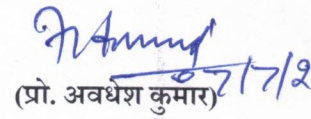 07/7/2
(प्रो. अवधेश कुमार)